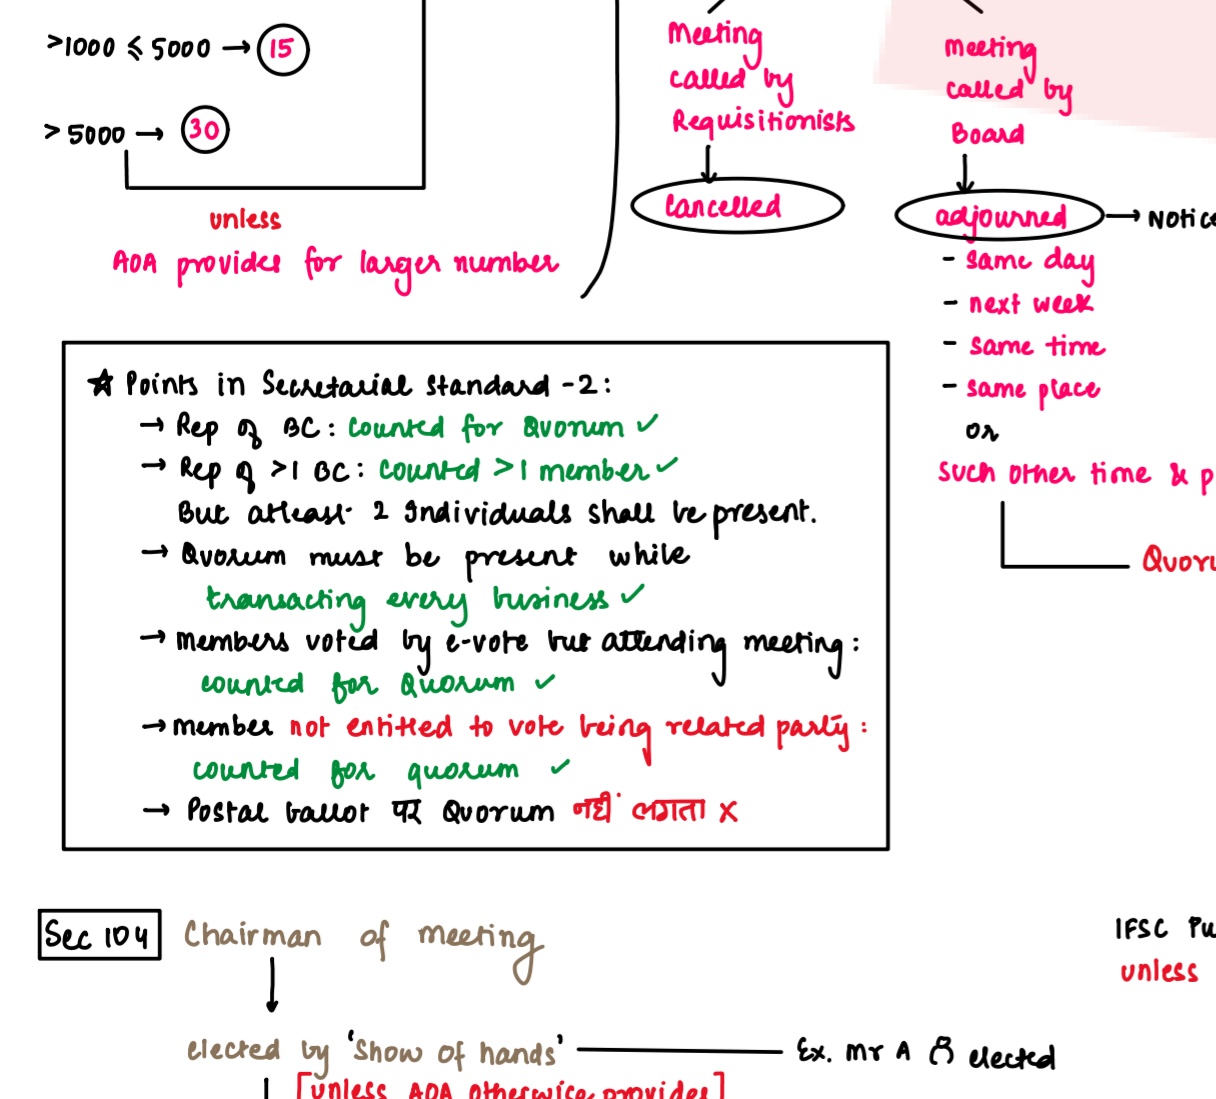 >1000 ≤ 5000 → 15
> 5000 → 30
unless
AOA provides for larger number
Meeting
called by
Requisitionists
Cancelled
Meeting
called by
Board
adjourned → Notice
- same day
- next week
- same time
- same place
or
such other time & p
Quoru
☆ Points in Secretarial Standard -2:
→ Rep of BC: counted for Quorum ✓
→ Rep of >1 BC: counted >1 member ✓
But atleast 2 Individuals shall be present.
→ Quorum must be present while
transacting every business ✓
→ Members voted by e-vote but attending meeting:
counted for Quorum ✓
→ Member not entitled to vote being related party:
counted for quorum ✓
→ Postal ballot पर Quorum नहीं लगता x
Sec 104 Chairman of Meeting
elected by 'Show of hands' Ex. Mr A elected
[unless AOA otherwise provides]
IFSC Pu
unless